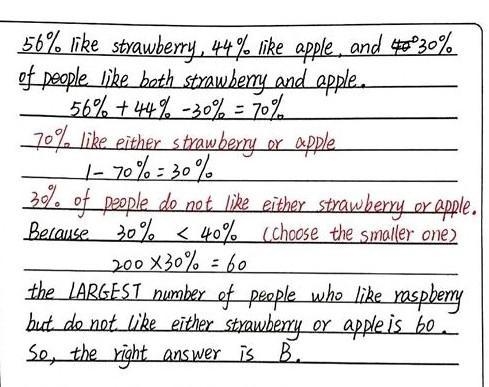 56% like strawberry, 44% like apple, and 30%
of people like both strawberry and apple.
56% + 44% - 30% = 70%
70% like either strawberry or apple
1 - 70% = 30%
30% of people do not like either strawberry or apple.
Because 30% < 40% (choose the smaller one)
200 × 30% = 60
the LARGEST number of people who like raspberry
but do not like either strawberry or apple is 60.
So, the right answer is B.